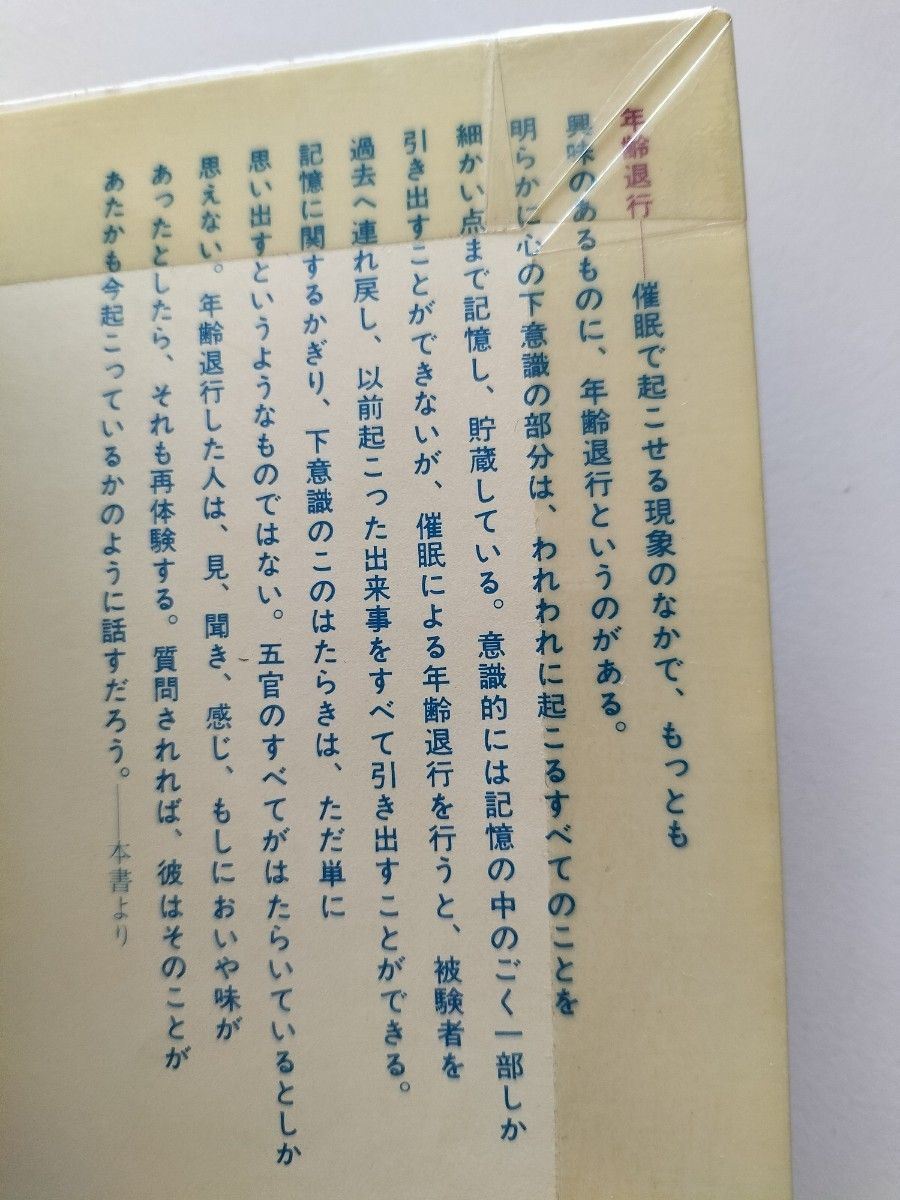 年齢退行――催眠で起こせる現象のなかで、もっとも
興味のあるものに、年齢退行というのがある。
明らかに心の下意識の部分は、われわれに起こるすべてのことを
細かい点まで記憶し、貯蔵している。意識的には記憶の中のごく一部しか
引き出すことができないが、催眠による年齢退行を行うと、被験者を
過去へ連れ戻し、以前起こった出来事をすべて引き出すことができる。
記憶に関するかぎり、下意識のこのはたらきは、ただ単に
思い出すというようなものではない。五官のすべてがはたらいているとしか
思えない。年齢退行した人は、見、聞き、感じ、もしにおいや味が
あったとしたら、それも再体験する。質問されれば、彼はそのことが
あたかも今起こっているかのように話すだろう。――本書より